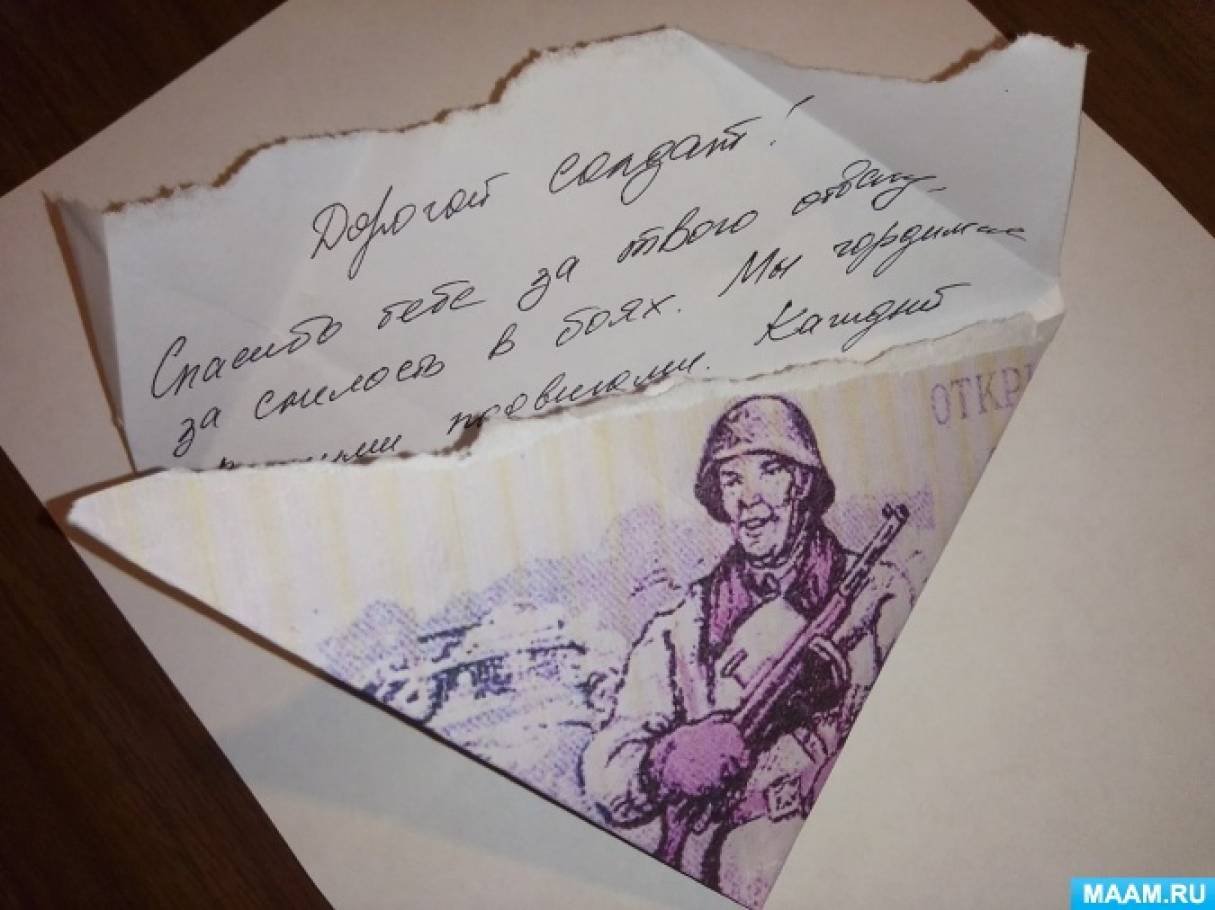 Дорогой солдат!
Спасибо тебе за твою отвагу,
за смелость в боях. Мы гордимся
подвигами. Каждый
ОТКР
MAAM.RU